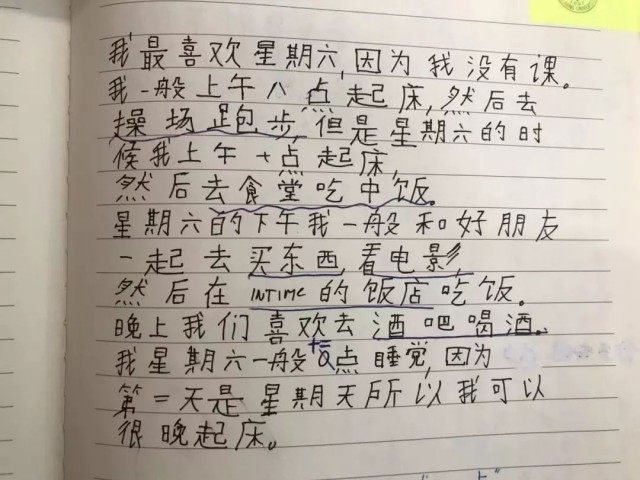 我最喜欢星期六,因为我没有课。
我一般上午八点起床,然后去
操场跑步,但是星期六的时
候我上午十点起床,
然后去食堂吃中饭。
星期六的下午我一般和好朋友
一起去买东西,看电影,
然后在INTIME的饭店吃饭。
晚上我们喜欢去酒吧喝酒。
我星期六一般十二点睡觉,因为
第二天是星期天所以我可以
很晚起床。